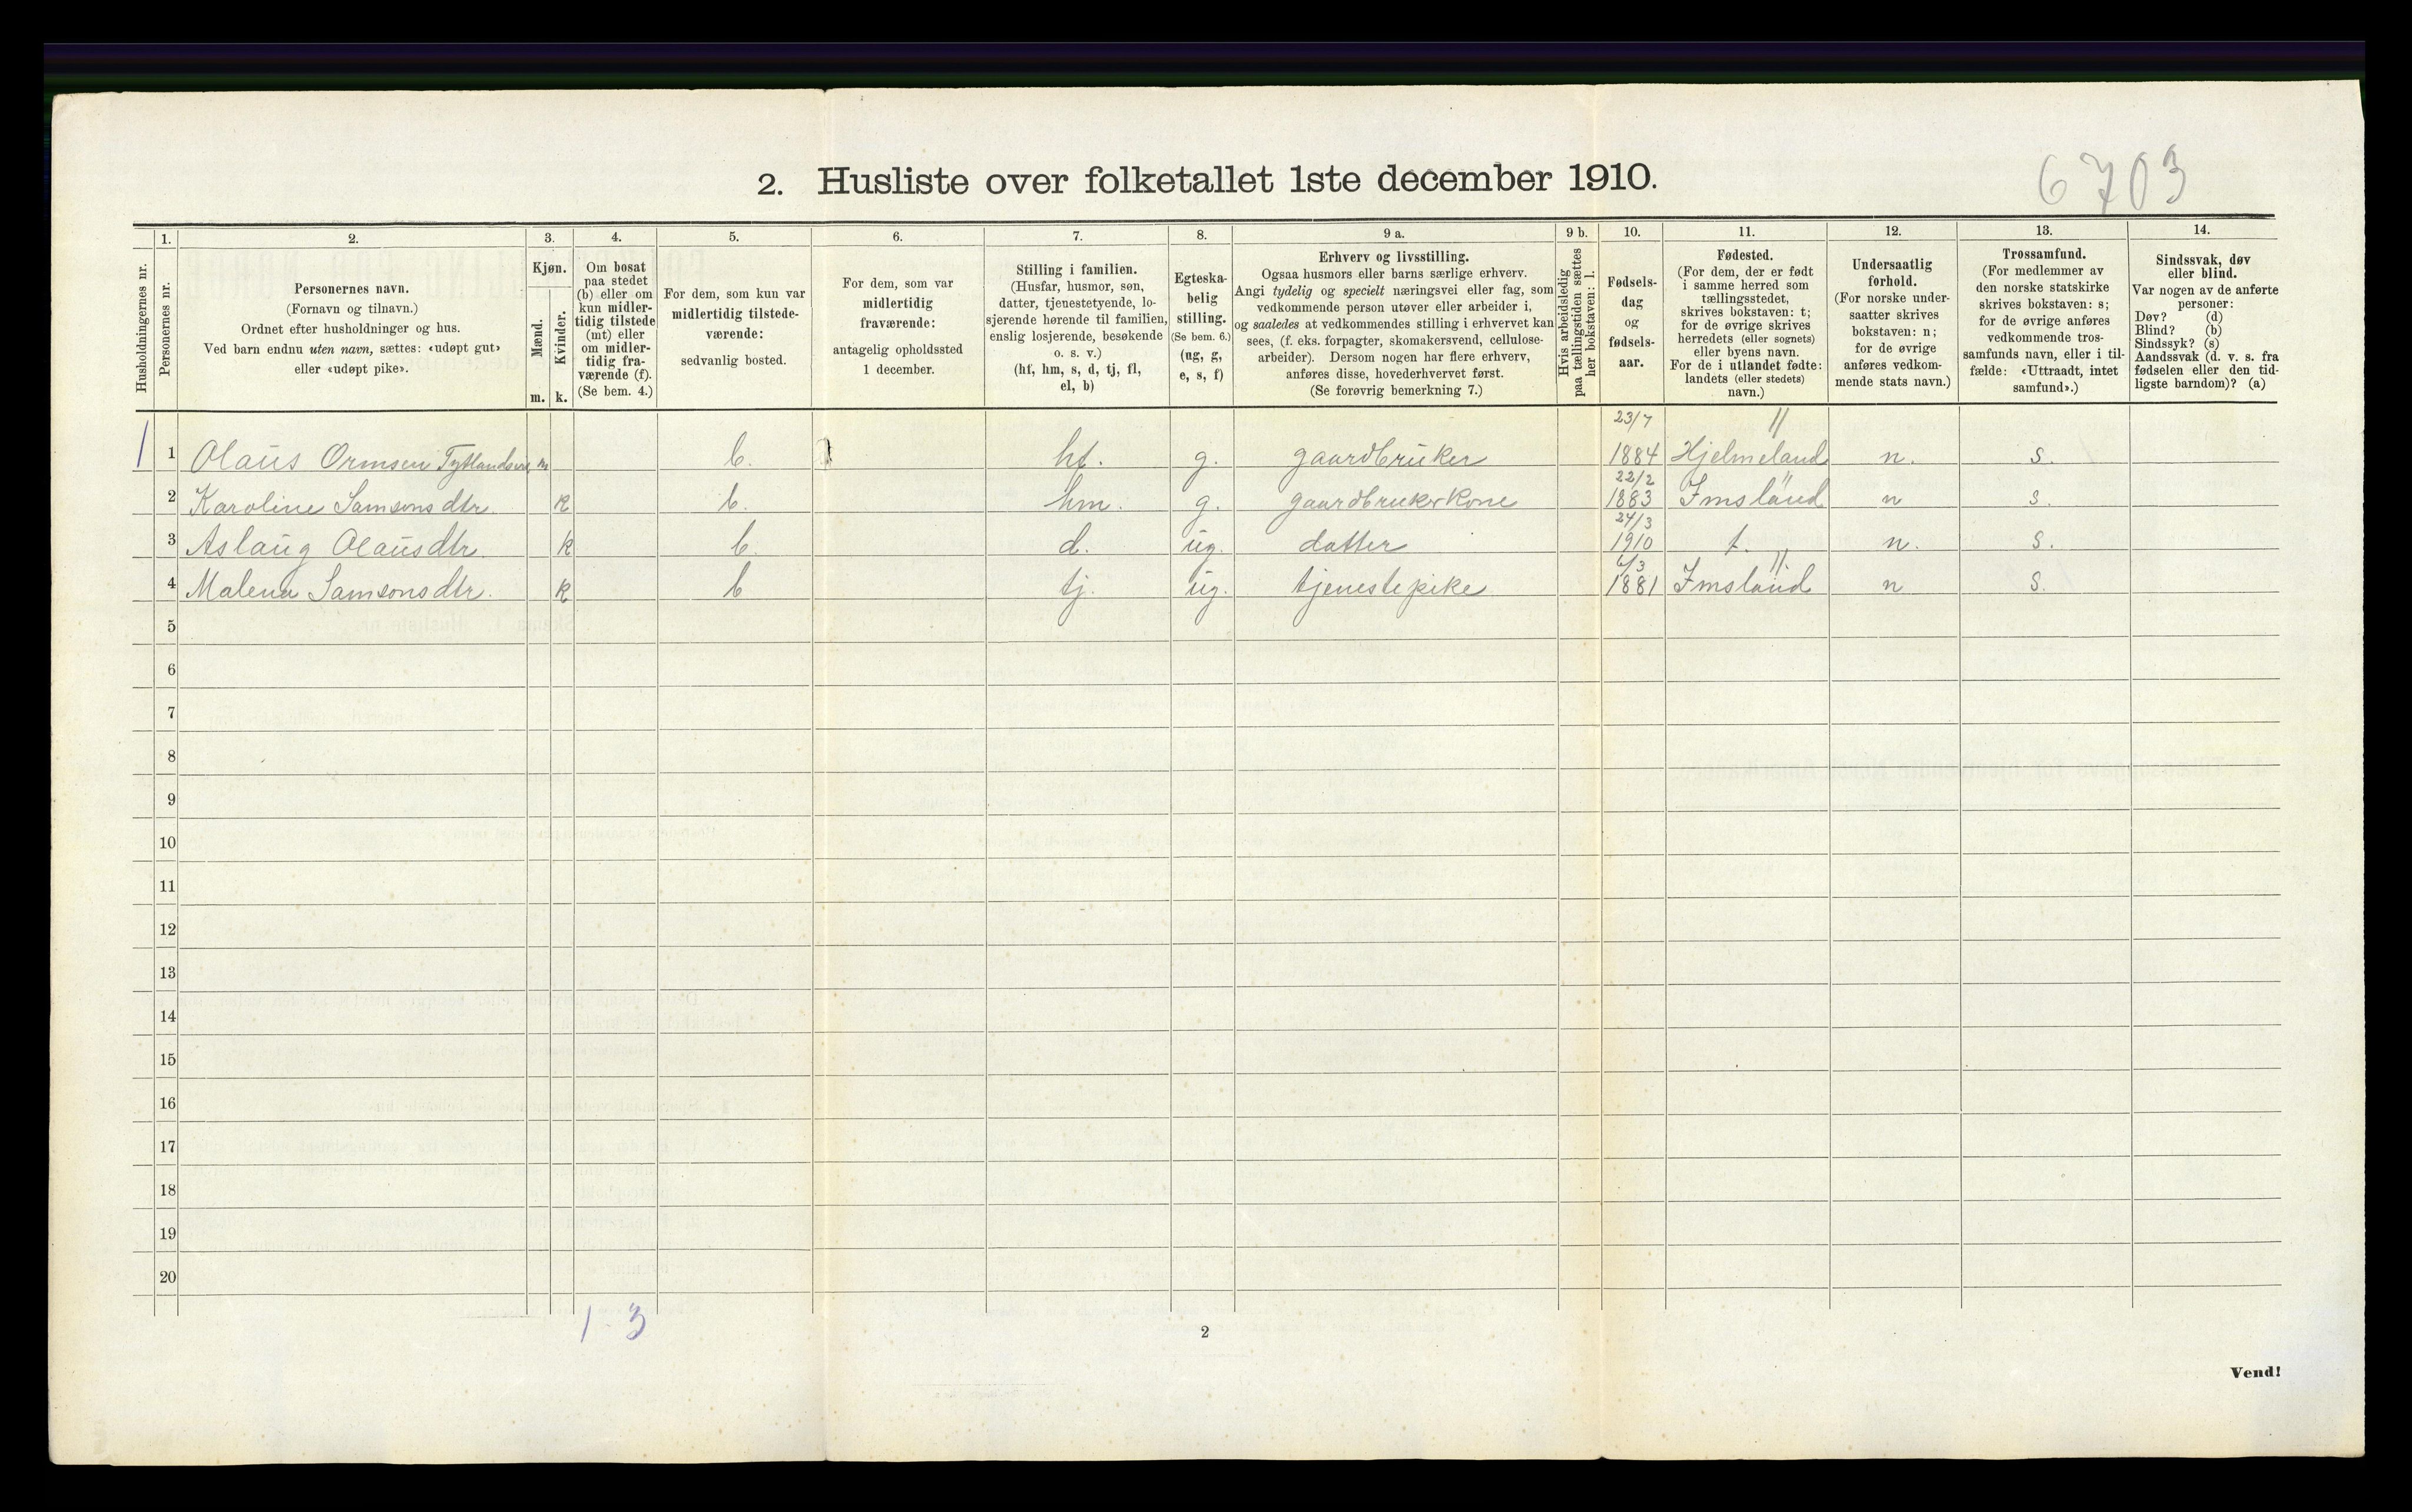 6703
2. Husliste over folketallet 1ste december 1910.
Husholdningernes nr.
1.
Personernes nr.
2.
Personernes navn.
(Fornavn og tilnavn.)
Ordnet efter husholdninger og hus.
Ved barn endnu uten navn, sættes: «udøpt gut»
eller «udøpt pike».
3.
Kjøn.
Mænd.
Kvinder.
m. k.
4.
Om bosat
paa stedet
(b) eller om
kun midler-
tidig tilstede
(mt) eller
om midler-
tidig fra-
værende (f).
(Se bem. 4.)
5.
For dem, som kun var
midlertidig tilstede-
værende:
sedvanlig bosted.
6.
For dem, som var
midlertidig
fraværende:
antagelig opholdssted
1 december.
7.
Stilling i familien.
(Husfar, husmor, søn,
datter, tjenestetyende, lo-
sjerende hørende til familien,
enslig losjerende, besøkende
o. s. v.)
(hf, hm, s, d, tj, fl,
el, b)
8.
Egteska-
belig
stilling.
(Se bem. 6.)
(ug, g,
e, s, f)
9 a.
Erhverv og livsstilling.
Ogsaa husmors eller barns særlige erhverv.
Angi tydelig og specielt næringsvei eller fag, som
vedkommende person utøver eller arbeider i,
og saaledes at vedkommendes stilling i erhvervet kan
sees, (f. eks. forpagter, skomakersvend, cellulose-
arbeider). Dersom nogen har flere erhverv,
anføres disse, hovederhvervet først.
(Se forøvrig bemerkning 7.)
9 b.
Hvis arbeidsledig
paa tællingstiden sættes
her bokstaven: l.
10.
Fødsels-
dag
og
fødsels-
aar.
11.
Fødested.
(For dem, der er født
i samme herred som
tællingsstedet,
skrives bokstaven: t;
for de øvrige skrives
herredets (eller sognets)
eller byens navn.
For de i utlandet fødte:
landets (eller stedets)
navn.)
12.
Undersaatlig
forhold.
(For norske under-
saatter skrives
bokstaven: n;
for de øvrige
anføres vedkom-
mende stats navn.)
13.
Trossamfund.
(For medlemmer av
den norske statskirke
skrives bokstaven: s;
for de øvrige anføres
vedkommende tros-
samfunds navn, eller i til-
fælde: «Uttraadt, intet
samfund».)
14.
Sindssvak, døv
eller blind.
Var nogen av de anførte
personer:
Døv? (d)
Blind? (b)
Sindssyk? (s)
Aandssvak (d. v. s. fra
fødselen eller den tid-
ligste barndom)? (a)
23/7 "
1 1 Olaus Ormsen m b. hf. g. gaardbruker 1884 Hjelmeland n. s.
22/2 "
2 Karoline Samsonsdtr. k b. hm. g. gaardbrukerkone 1883 Imsland n s.
24/3
3 Aslaug Olausdtr. k b. d. ug. datter 1910 t. n. s.
6/3 "
4 Malena Samsonsdtr. k b tj. ug. tjenestepike 1881 Imsland n s.
5
6
7
8
9
10
11
12
13
14
15
16
17
18
19
20
1-3
2
Vend!